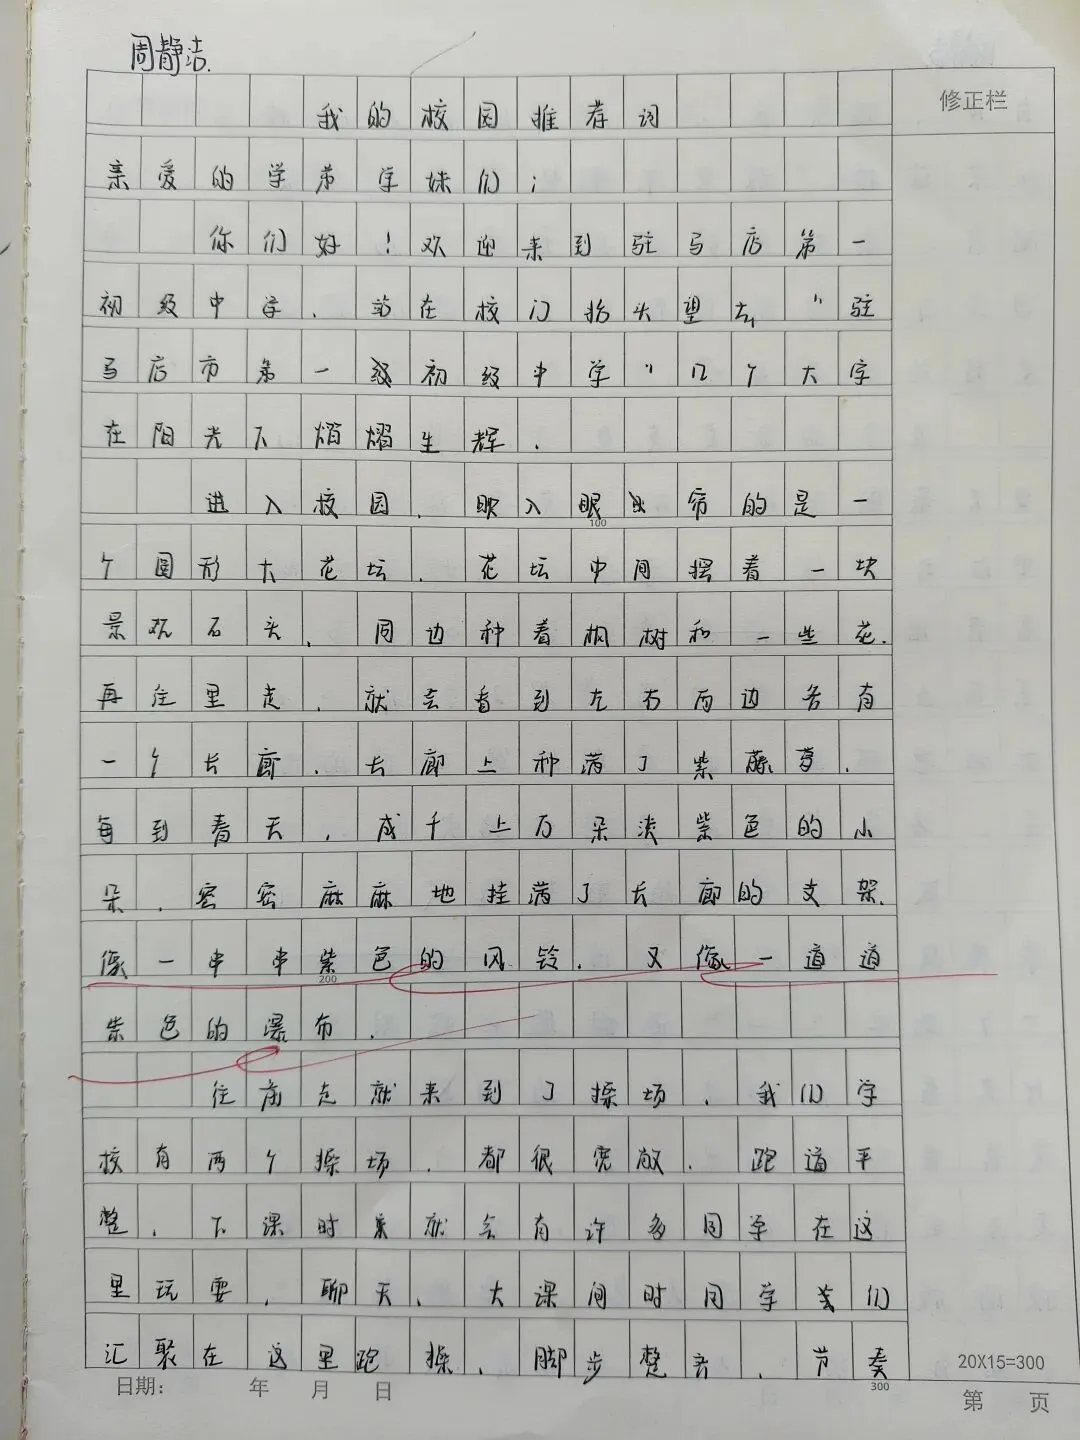 周静洁.
修正栏
我的校园推荐词
亲爱的学弟学妹们:
你们好!欢迎来到驻马店第一
初级中学.站在校门抬头望去,"驻
马店市第一级初级中学"几个大字
在阳光下熠熠生辉.
进入校园.映入眼帘的是一
100
个圆形大花坛.花坛中间摆着一块
景观石头.周边种着枫树和一些花.
再往里走.就会看到左右两边各有
一个长廊.长廊上种满了紫藤萝.
每到春天,成千上万朵淡紫色的小
朵.密密麻麻地挂满了长廊的支架.
像一串串紫色的风铃.又像一道道
200
紫色的瀑布.
往前走就来到了操场.我们学
校有两个操场.都很宽敞.跑道平
整.下课时来就会有许多同学在这
里玩耍.聊天.大课间时同学们
汇聚在这里跑操.脚步整齐.节奏
300
20X15=300
日期: 年 月 日
第 页